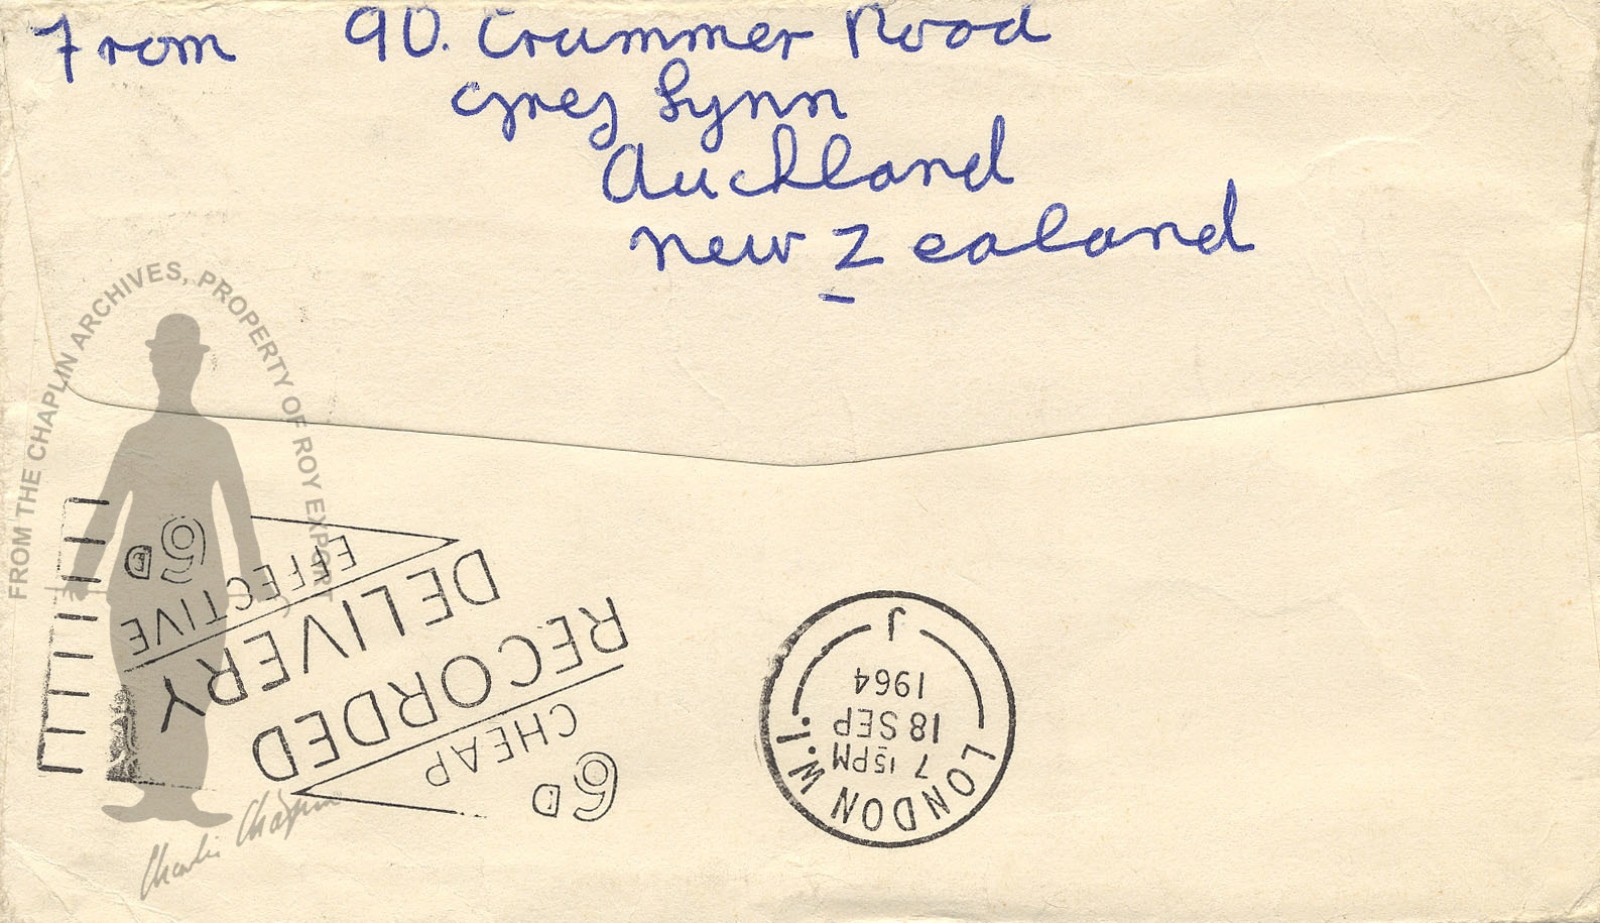 From 90. Crummer Road
Grey Lynn
Auckland
New Zealand
FROM THE CHAPLIN ARCHIVES, PROPERTY OF ROY EXPORT
Charlie Chaplin
6D
CHEAP
RECORDED
DELIVERY
EFFECTIVE
6D
LONDON W.1.
7 15PM
18 SEP
1964
J